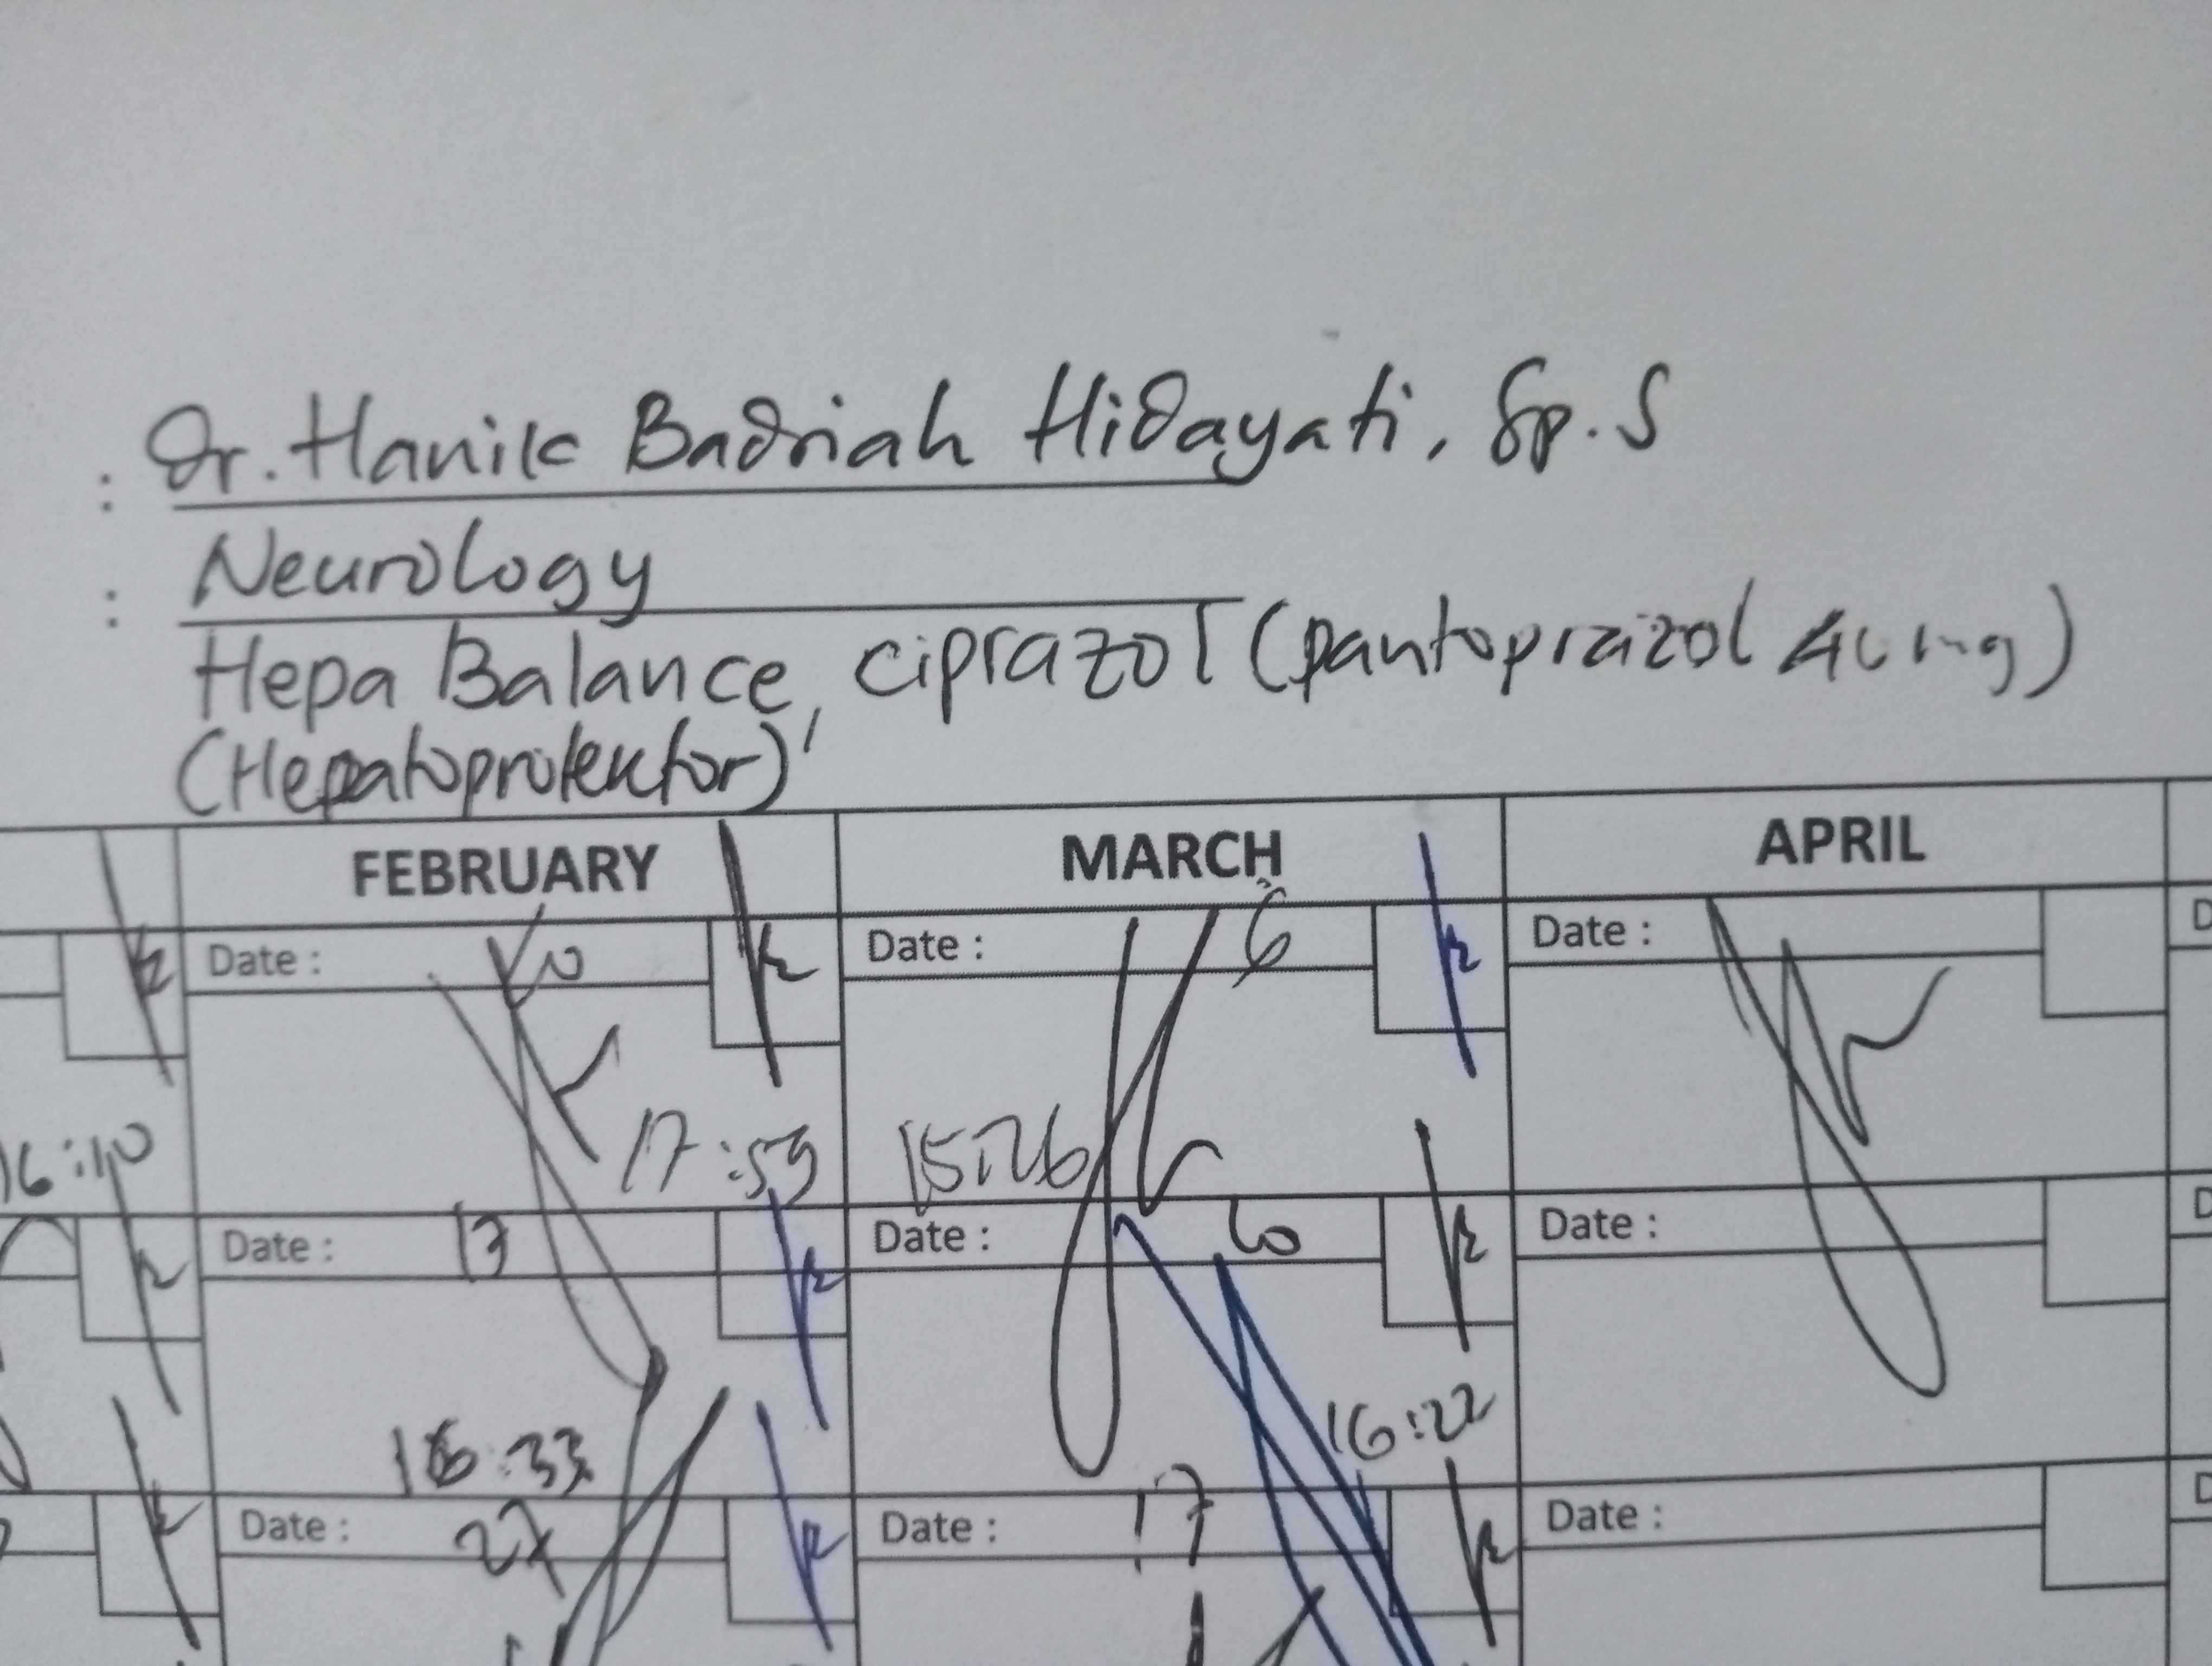 : Dr. Hanik Badriah Hidayati, Sp.S
: Neurology
Hepa Balance, ciprazol (pantoprazol 40 mg)
(Hepatoprotektor)
FEBRUARY MARCH APRIL
Date : Date : 6 Date :
16:10 17:59 15:26
Date : 13 Date : 10 Date :
16:33 16:22
Date : 27 Date : 17 Date :